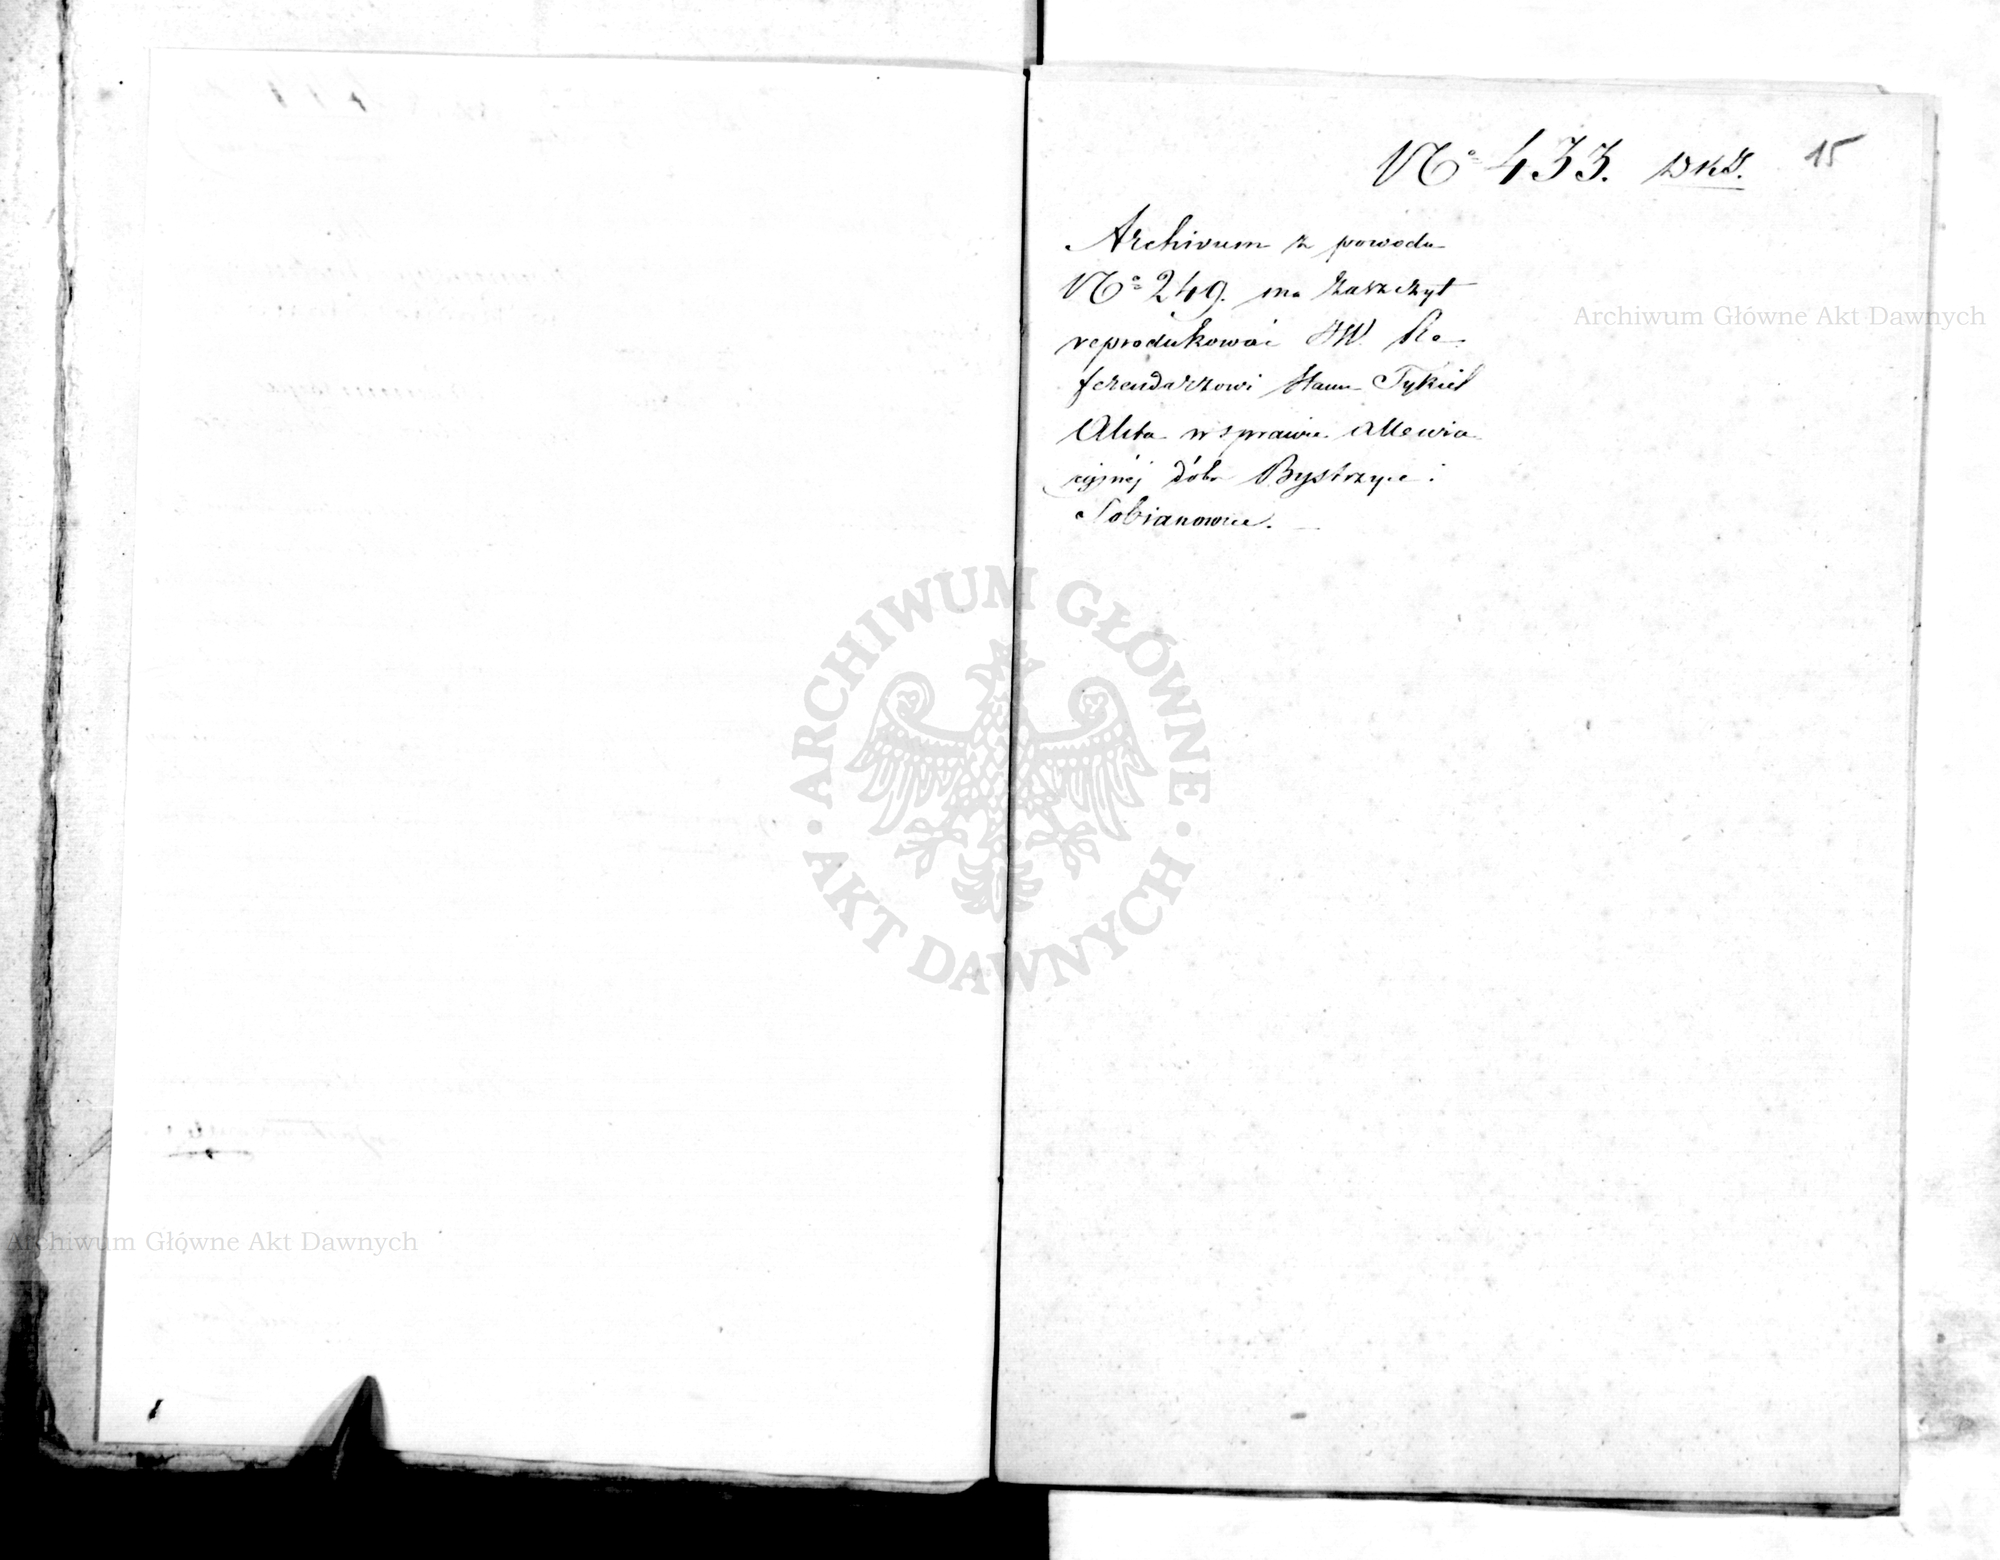 No 433. 15
Archivum z powodu
No 249. ma Zaszczyt
reprodukować JW. Re-
ferendarzowi Stanu Tykiel
Akta w sprawie allewia
cyjnéj dóbr Bystrzyce i
Sobianowice. —
Archiwum Główne Akt Dawnych
ARCHIWUM GŁÓWNE AKT DAWNYCH
Archiwum Główne Akt Dawnych